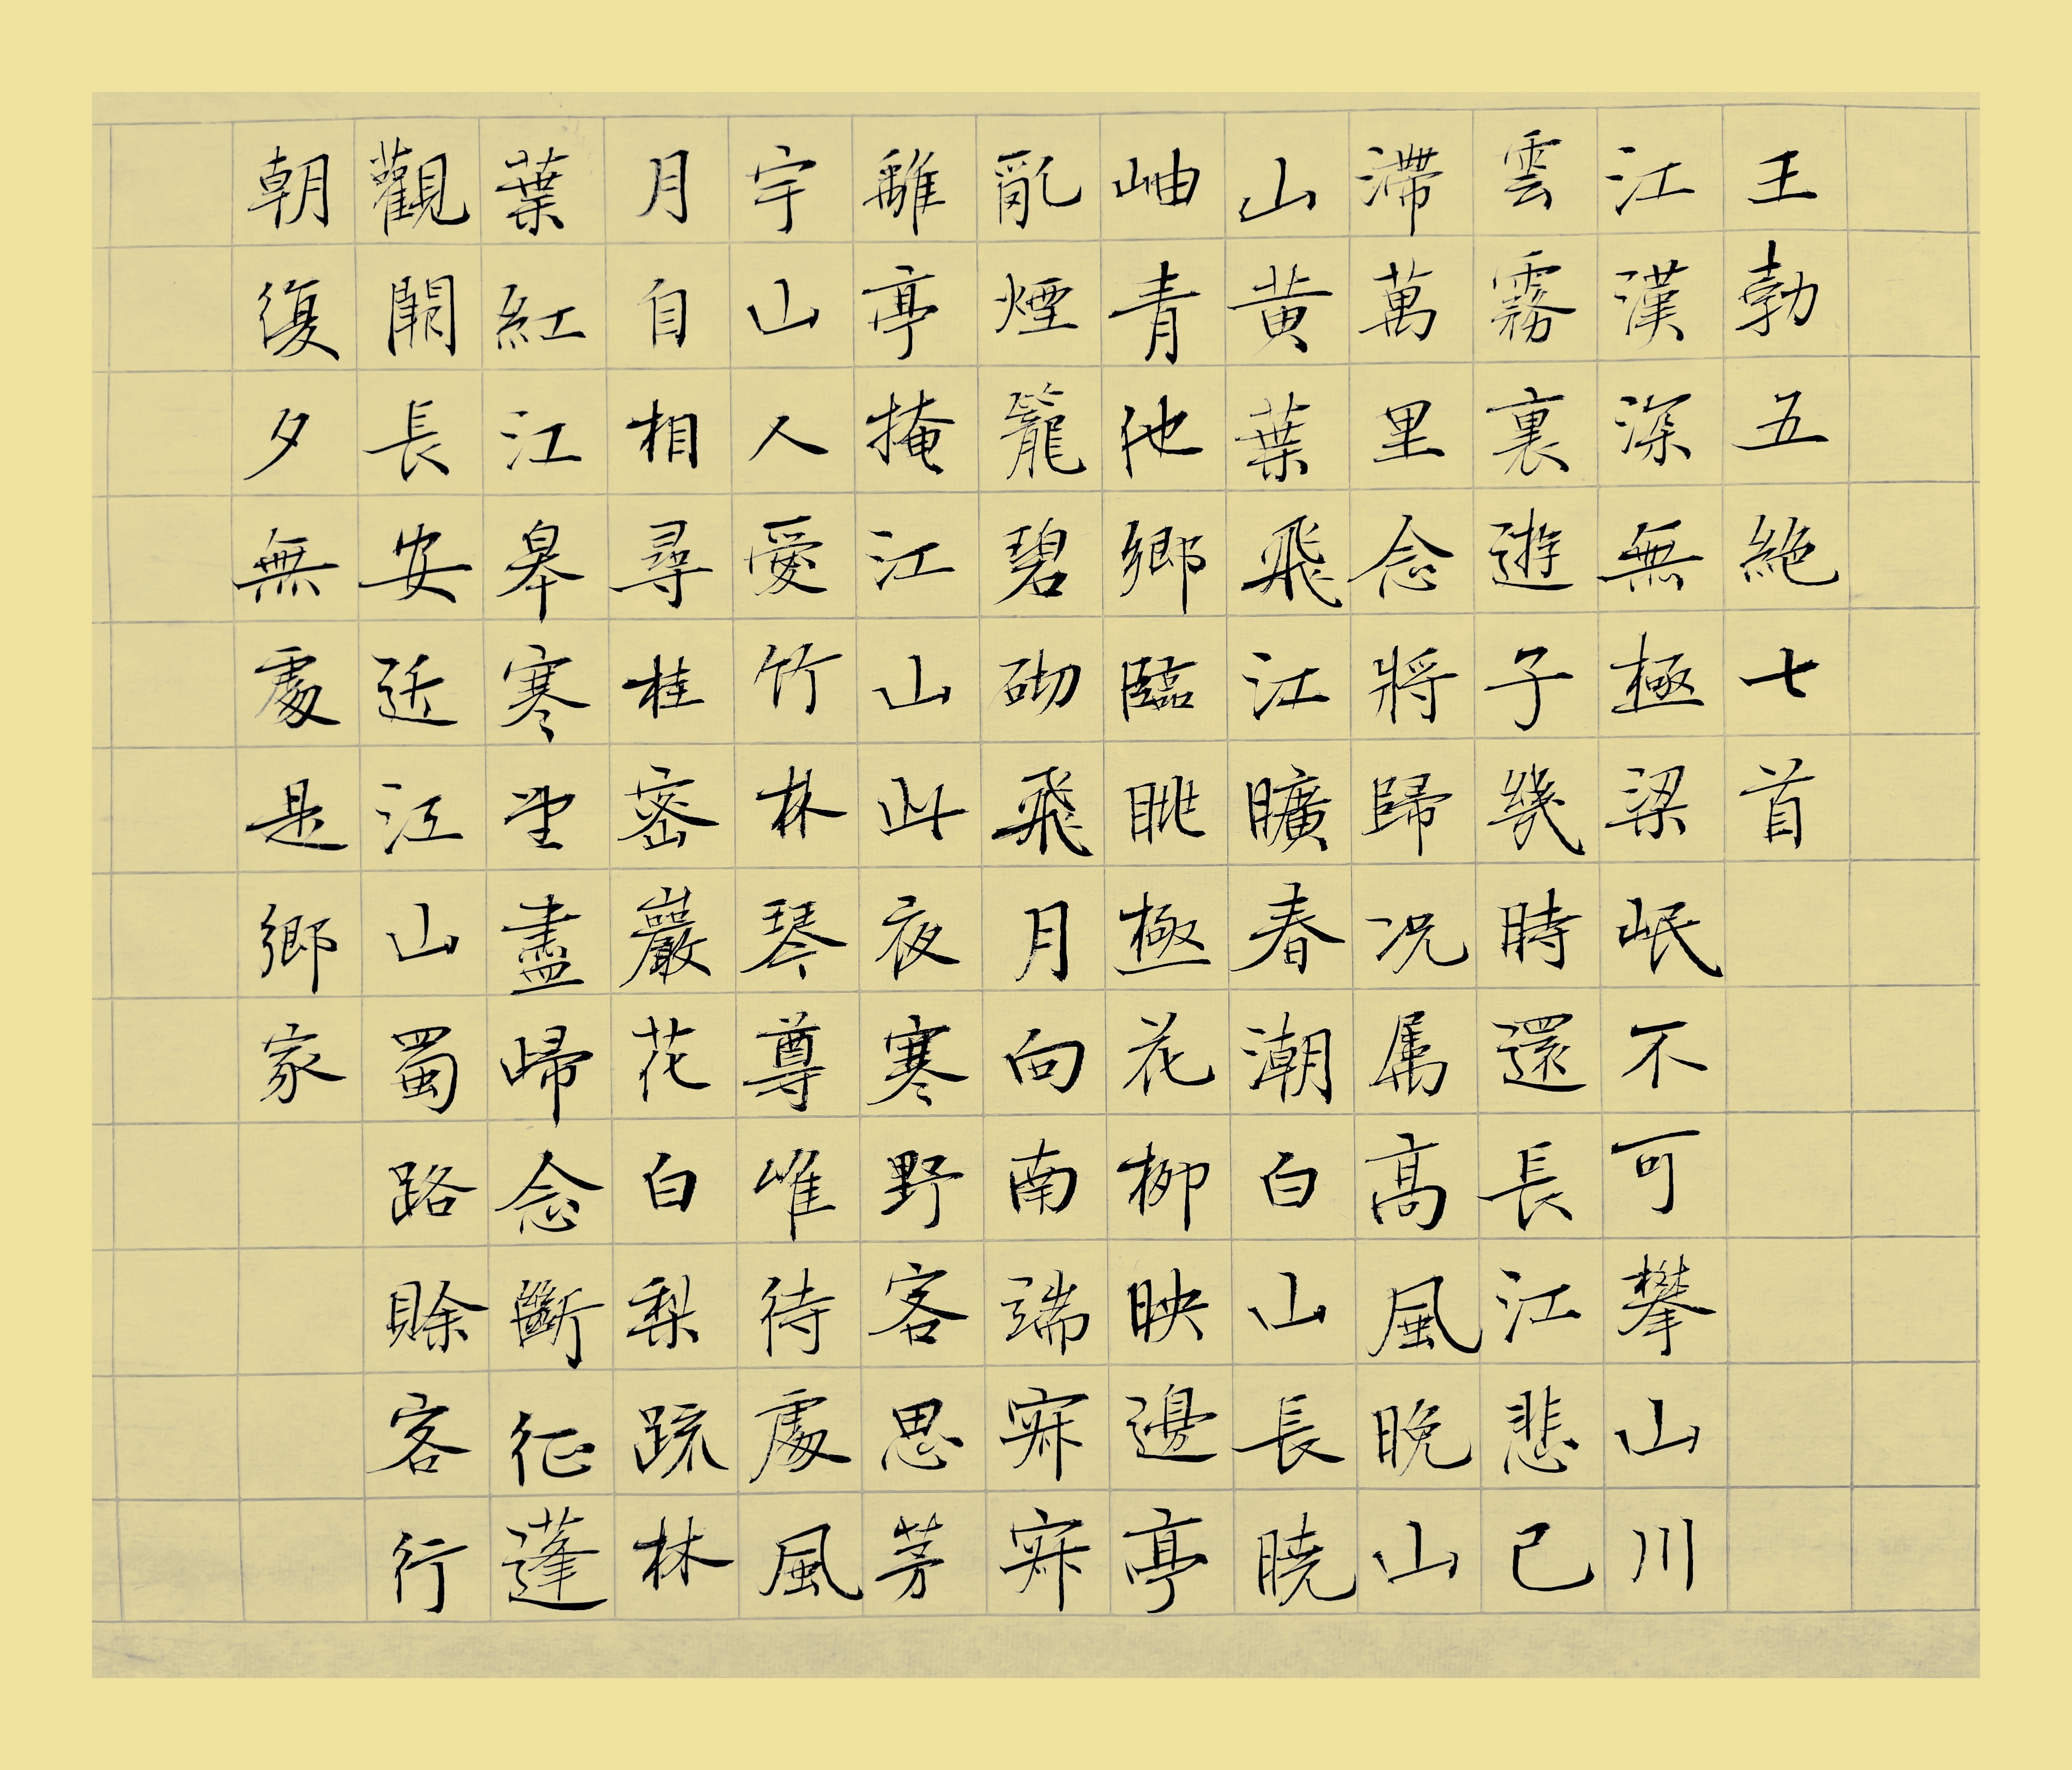 王勃五絕七首
江漢深無極梁岷不可攀山川
雲霧裏遊子幾時還長江悲已
滯萬里念將歸况属高風晚山
山黃葉飛江曠春潮白山長曉
岫青他鄉臨眺極花柳映邊亭
亂煙籠碧砌飛月向南端寂寂
離亭掩江山此夜寒野客思茅
宇山人愛竹林琴尊唯待處風
月自相尋桂密巖花白梨疏林
葉紅江皋寒望盡歸念斷征蓬
觀闕長安近江山蜀路賒客行
朝復夕無處是鄉家